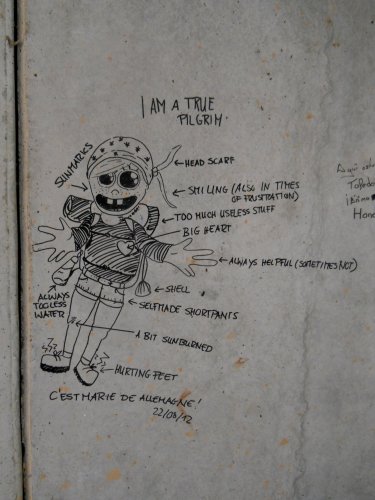 I AM A TRUE
PILGRIM.
SUNMARKS
HEAD SCARF
SMILING (ALSO IN TIMES
OF FRUSTRATION)
TOO MUCH USELESS STUFF
BIG HEART
ALWAYS HELPFUL (SOMETIMES NOT)
SHELL
ALWAYS
TOO LESS
WATER
SELFMADE SHORTPANTS
A BIT SUNBURNED
HURTING FEET
C'EST MARIE DE ALLEMAGNE!
22/08/12